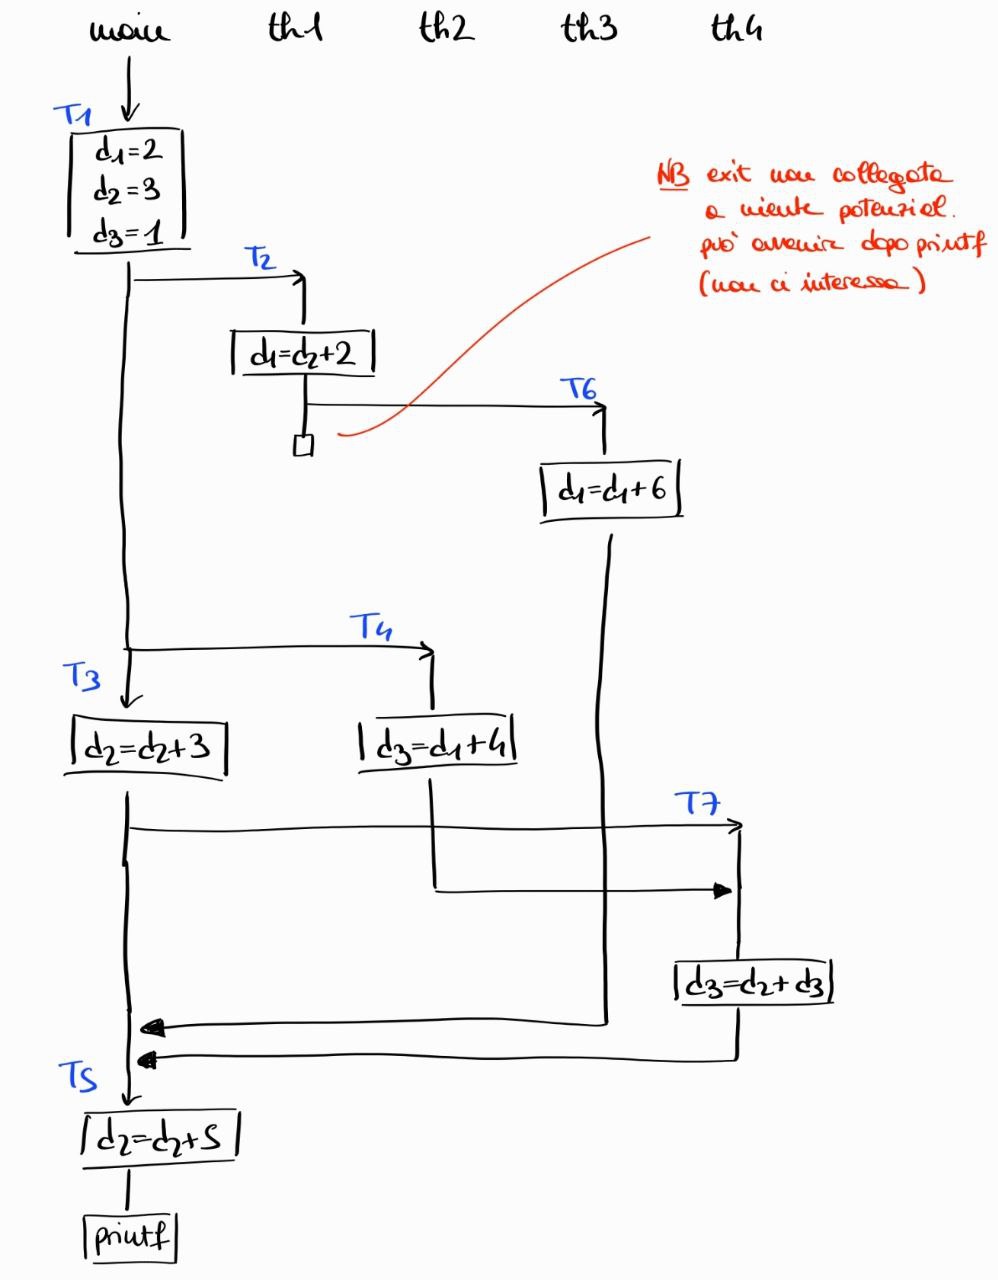 main th1 th2 th3 th4
T1
d1=2
d2=3
d3=1
NB exit non collegata
a niente potenzial.
può avvenire dopo printf
(non ci interessa)
T2
d1=d2+2
T6
d1=d1+6
T4
T3
d2=d2+3
d3=d1+4
T7
d3=d2+d3
T5
d2=d2+5
printf